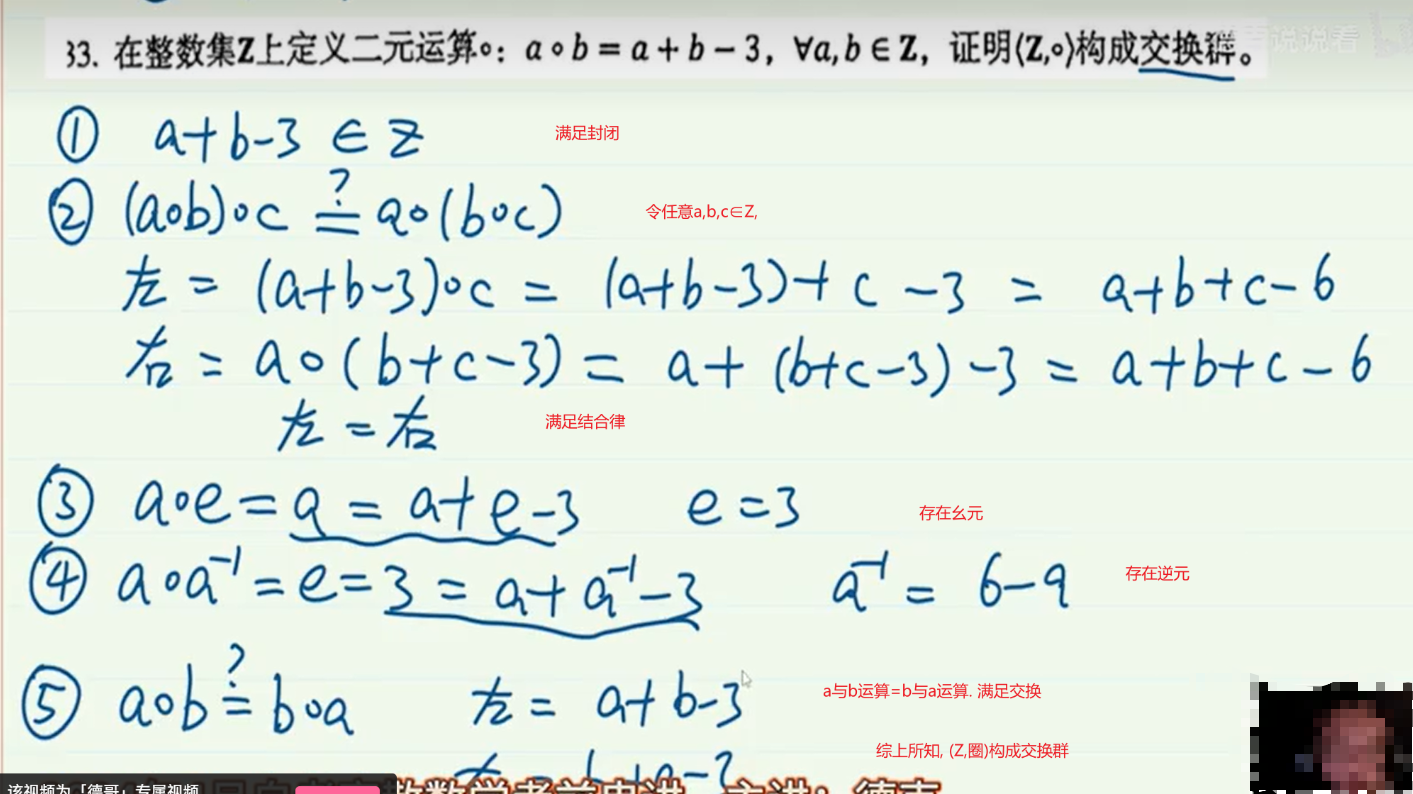 33. 在整数集Z上定义二元运算∘：a∘b=a+b−3，∀a,b∈Z，证明⟨Z,∘⟩构成交换群。
说说看
① a+b-3 ∈ Z 满足封闭
② (a∘b)∘c ?= a∘(b∘c) 令任意a,b,c∈Z,
左 = (a+b-3)∘c = (a+b-3)+c-3 = a+b+c-6
右 = a∘(b+c-3) = a+(b+c-3)-3 = a+b+c-6
左 = 右 满足结合律
③ a∘e=a=a+e-3 e=3 存在幺元
④ a∘a⁻¹=e=3=a+a⁻¹-3 a⁻¹=6-a 存在逆元
⑤ a∘b ?= b∘a 左 = a+b-3 a与b运算=b与a运算. 满足交换
综上所知, (Z,圈)构成交换群
该视频为「德哥」专属视频